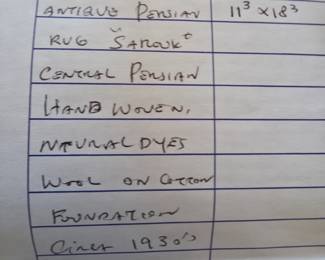 ANTIQUE PERSIAN 11³ x 18³
RUG SAROUK
CENTRAL PERSIAN
HAND WOVEN,
NATURAL DYES
WOOL ON COTTON
FOUNDATION
Circa 1930's